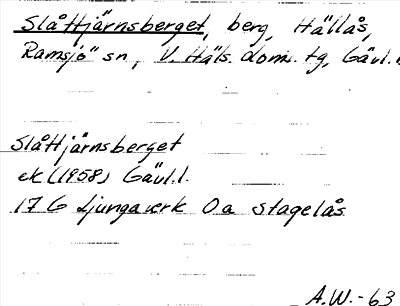 Slåttjärnsberget, berg, Hällås,
Ramsjö sn, V. Häls. doms. tg, Gävl.
Slåttjärnsberget
ek (1958) Gävl.l.
17 G Ljungaverk 0a Stagelås
A.W. - 63